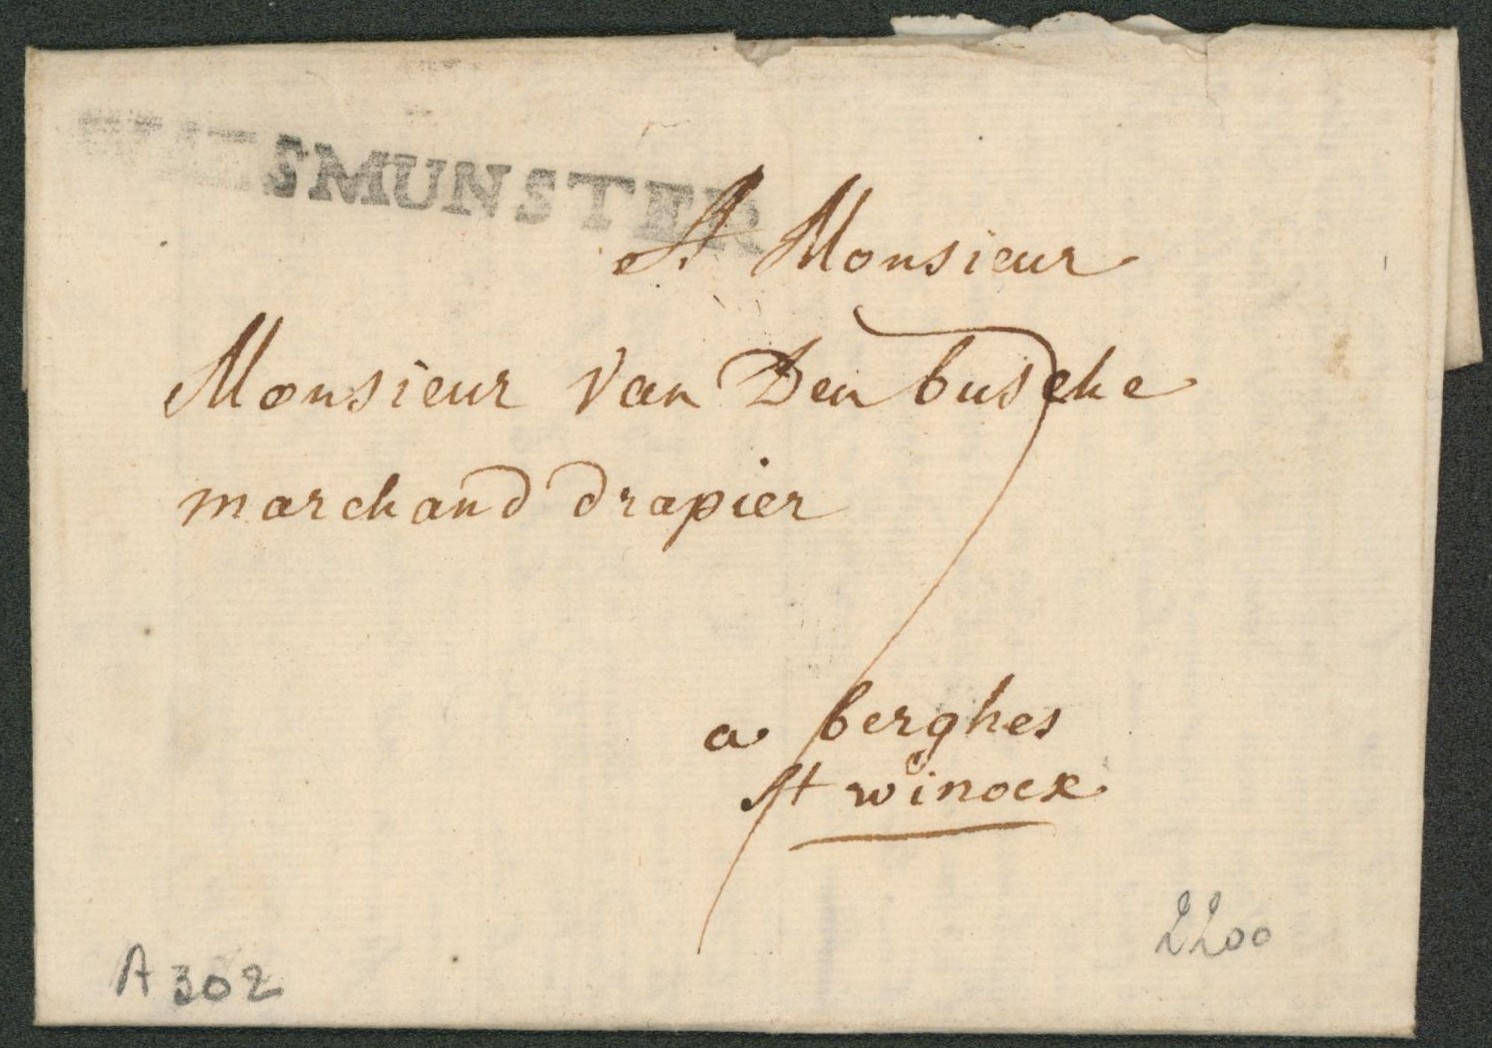 SMUNSTER
A Monsieur
Monsieur Van Den busche
marchand drapier
a berghes
St winock
2200
A 302